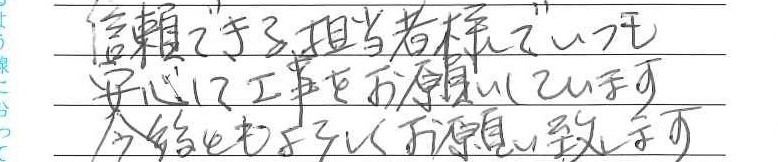 信頼できる担当者様でいつも
安心して工事をお願いしています
今後ともよろしくお願い致します